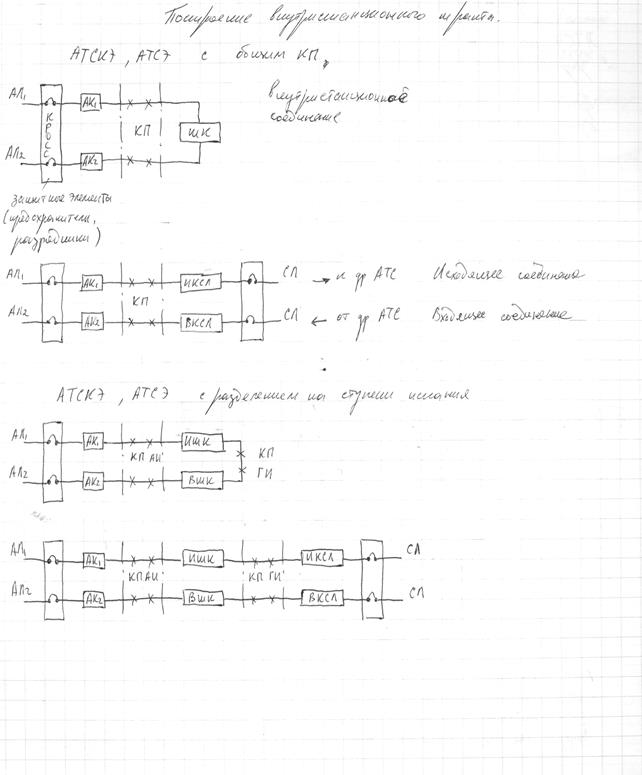 Построение внутристанционного тракта.
АТСКЭ, АТСЭ с общим КП,
АЛ1 АК1
КРОСС КП ШК
АЛ2 АК2
внутристанционное
соединение
защитные элементы
(предохранители,
разрядники)
АЛ1 АК1 ИКСЛ СЛ → к др АТС Исходящее соединение
КП
АЛ2 АК2 ВКСЛ СЛ ← от др АТС Входящее соединение
АТСКЭ, АТСЭ с разделением на ступени искания
АЛ1 АК1 ИШК
КП АИ КП
АЛ2 АК2 ВШК ГИ
АЛ1 АК1 ИШК ИКСЛ СЛ
КПАИ КП ГИ
АЛ2 АК2 ВШК ВКСЛ СЛ